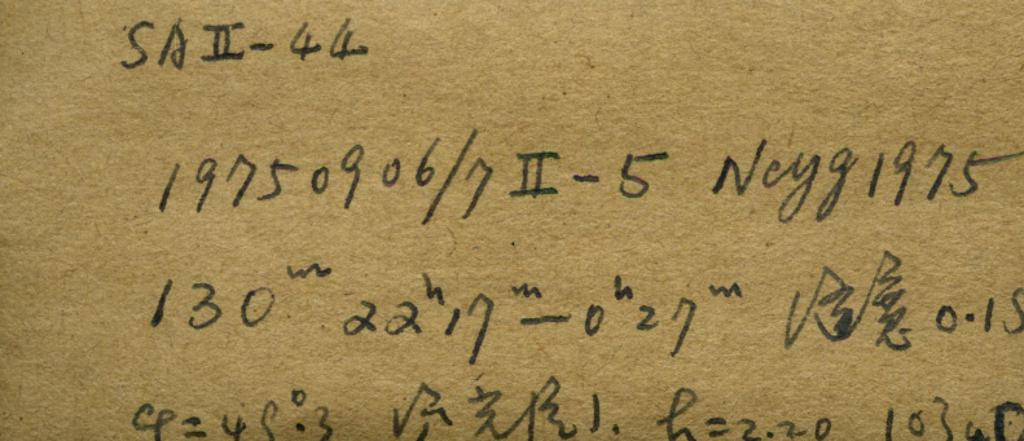 SA II-44
19750906/7 II-5 Ncyg 1975
130ᵐ 22ʰ17ᵐ—0ʰ27ᵐ 0.15
φ=45°.3 h=2.20